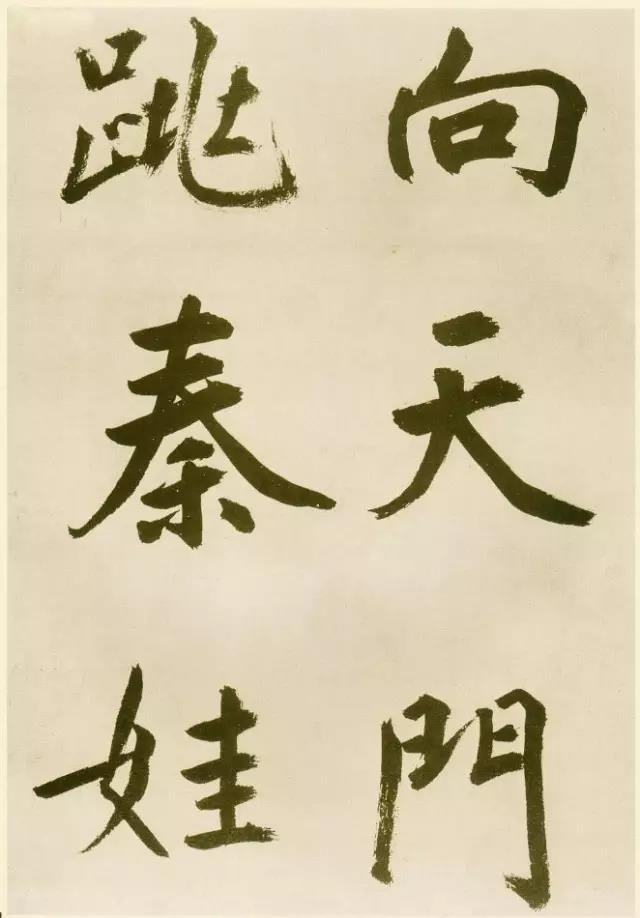 向天門
跳秦娃